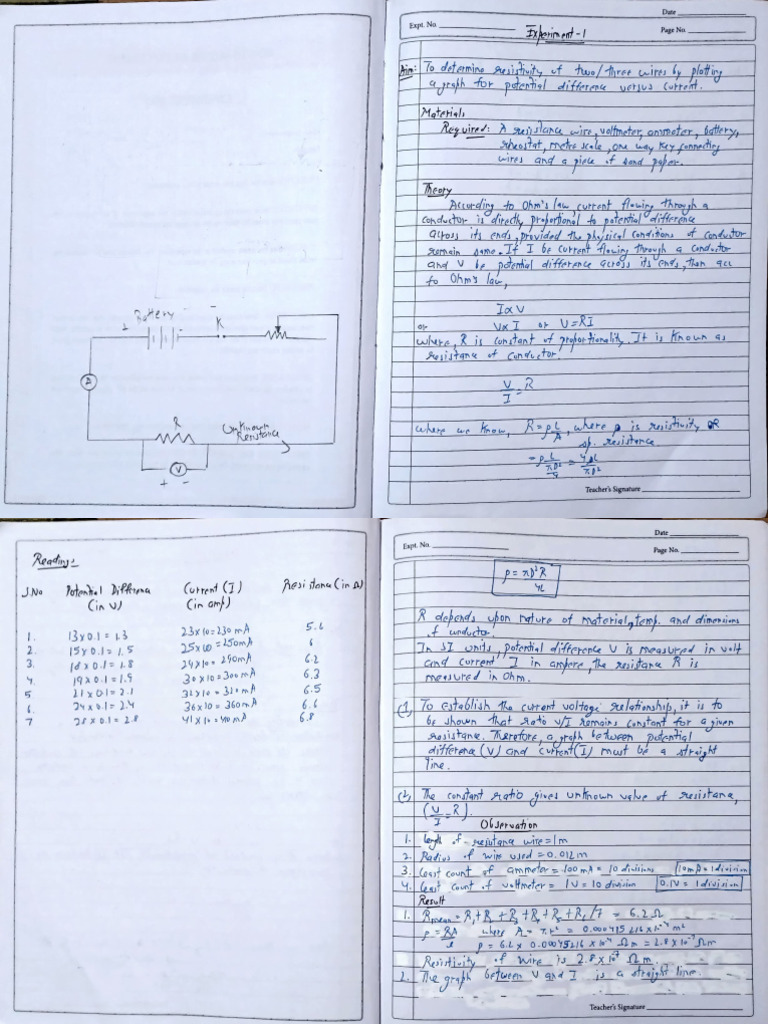 Battery
K
A
R
Unknown
Resistance
V
+ -
Date
Expt. No.
Page No.
Experiment-1
Aim: To determine resistivity of two/three wires by plotting
a graph for potential difference versus current.
Materials
Required: A resistance wire, voltmeter, ammeter, battery,
rheostat, metre scale, one way key, connecting
wires and a piece of sand paper.
Theory
According to Ohm's law, current flowing through a
conductor is directly proportional to potential difference
across its ends, provided the physical conditions of conductor
remain same. If I be current flowing through a conductor
and V be potential difference across its ends, then acc
to Ohm's law,
I∝V
or V∝I or V=RI
where, R is constant of proportionality. It is known as
resistance of conductor.
V/I = R
where we know, R = ρL/A, where ρ is resistivity OR
sp. resistance.
= ρL/(πD²/4) = 4ρL/πD²
Teacher's Signature
Readings
S.No Potential Difference Current (I) Resistance (in Ω)
(in V) (in amp)
1. 13×0.1 = 1.3 23×10 = 230 mA 5.6
2. 15×0.1 = 1.5 = 250mA 6
3. 18×0.1 = 1.8 6.2
4. 30×10 = 300 mA 6.3
5 21×0.1 = 2.1 32×10 = 320 mA 6.5
6. 24×0.1 = 2.4 36×10 = 360 mA 6.6
7 28×0.1 = 2.8 41×10 = 6.8
Date
Expt. No.
Page No.
ρ = πD²R/4L
R depends upon nature of material, temp. and dimensions
of conductor.
In SI units, potential difference V is measured in volt
and current I in ampere, the resistance R is
measured in Ohm.
(1) To establish the current voltage relationship, it is to
be shown that ratio V/I remains constant for a given
resistance. Therefore, a graph between potential
difference (V) and current (I) must be a straight
line.
(2) The constant ratio gives unknown value of resistance,
(V/I = R).
Observation
1. Length of resistance wire = 1m
2. Radius of wire used = 0.012m
3. Least count of ammeter = 100 mA = 10 divisions 10mA = 1 division
4. Least count of voltmeter = 1V = 10 division 0.1V = 1 division
Result
1. Rmean = / 7 = 6.2 Ω
ρ = RA/l where A = πr² =
ρ = 6.2 × Ωm = Ωm
Resistivity of wire is Ωm.
2. The graph between V and I is a straight line.
Teacher's Signature